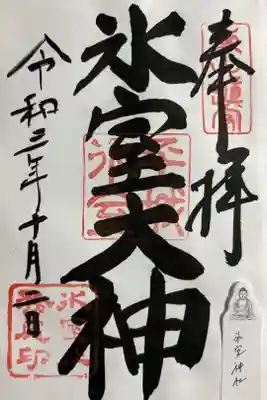 奉拝
氷室大神
令和三年十月二日
氷室神社